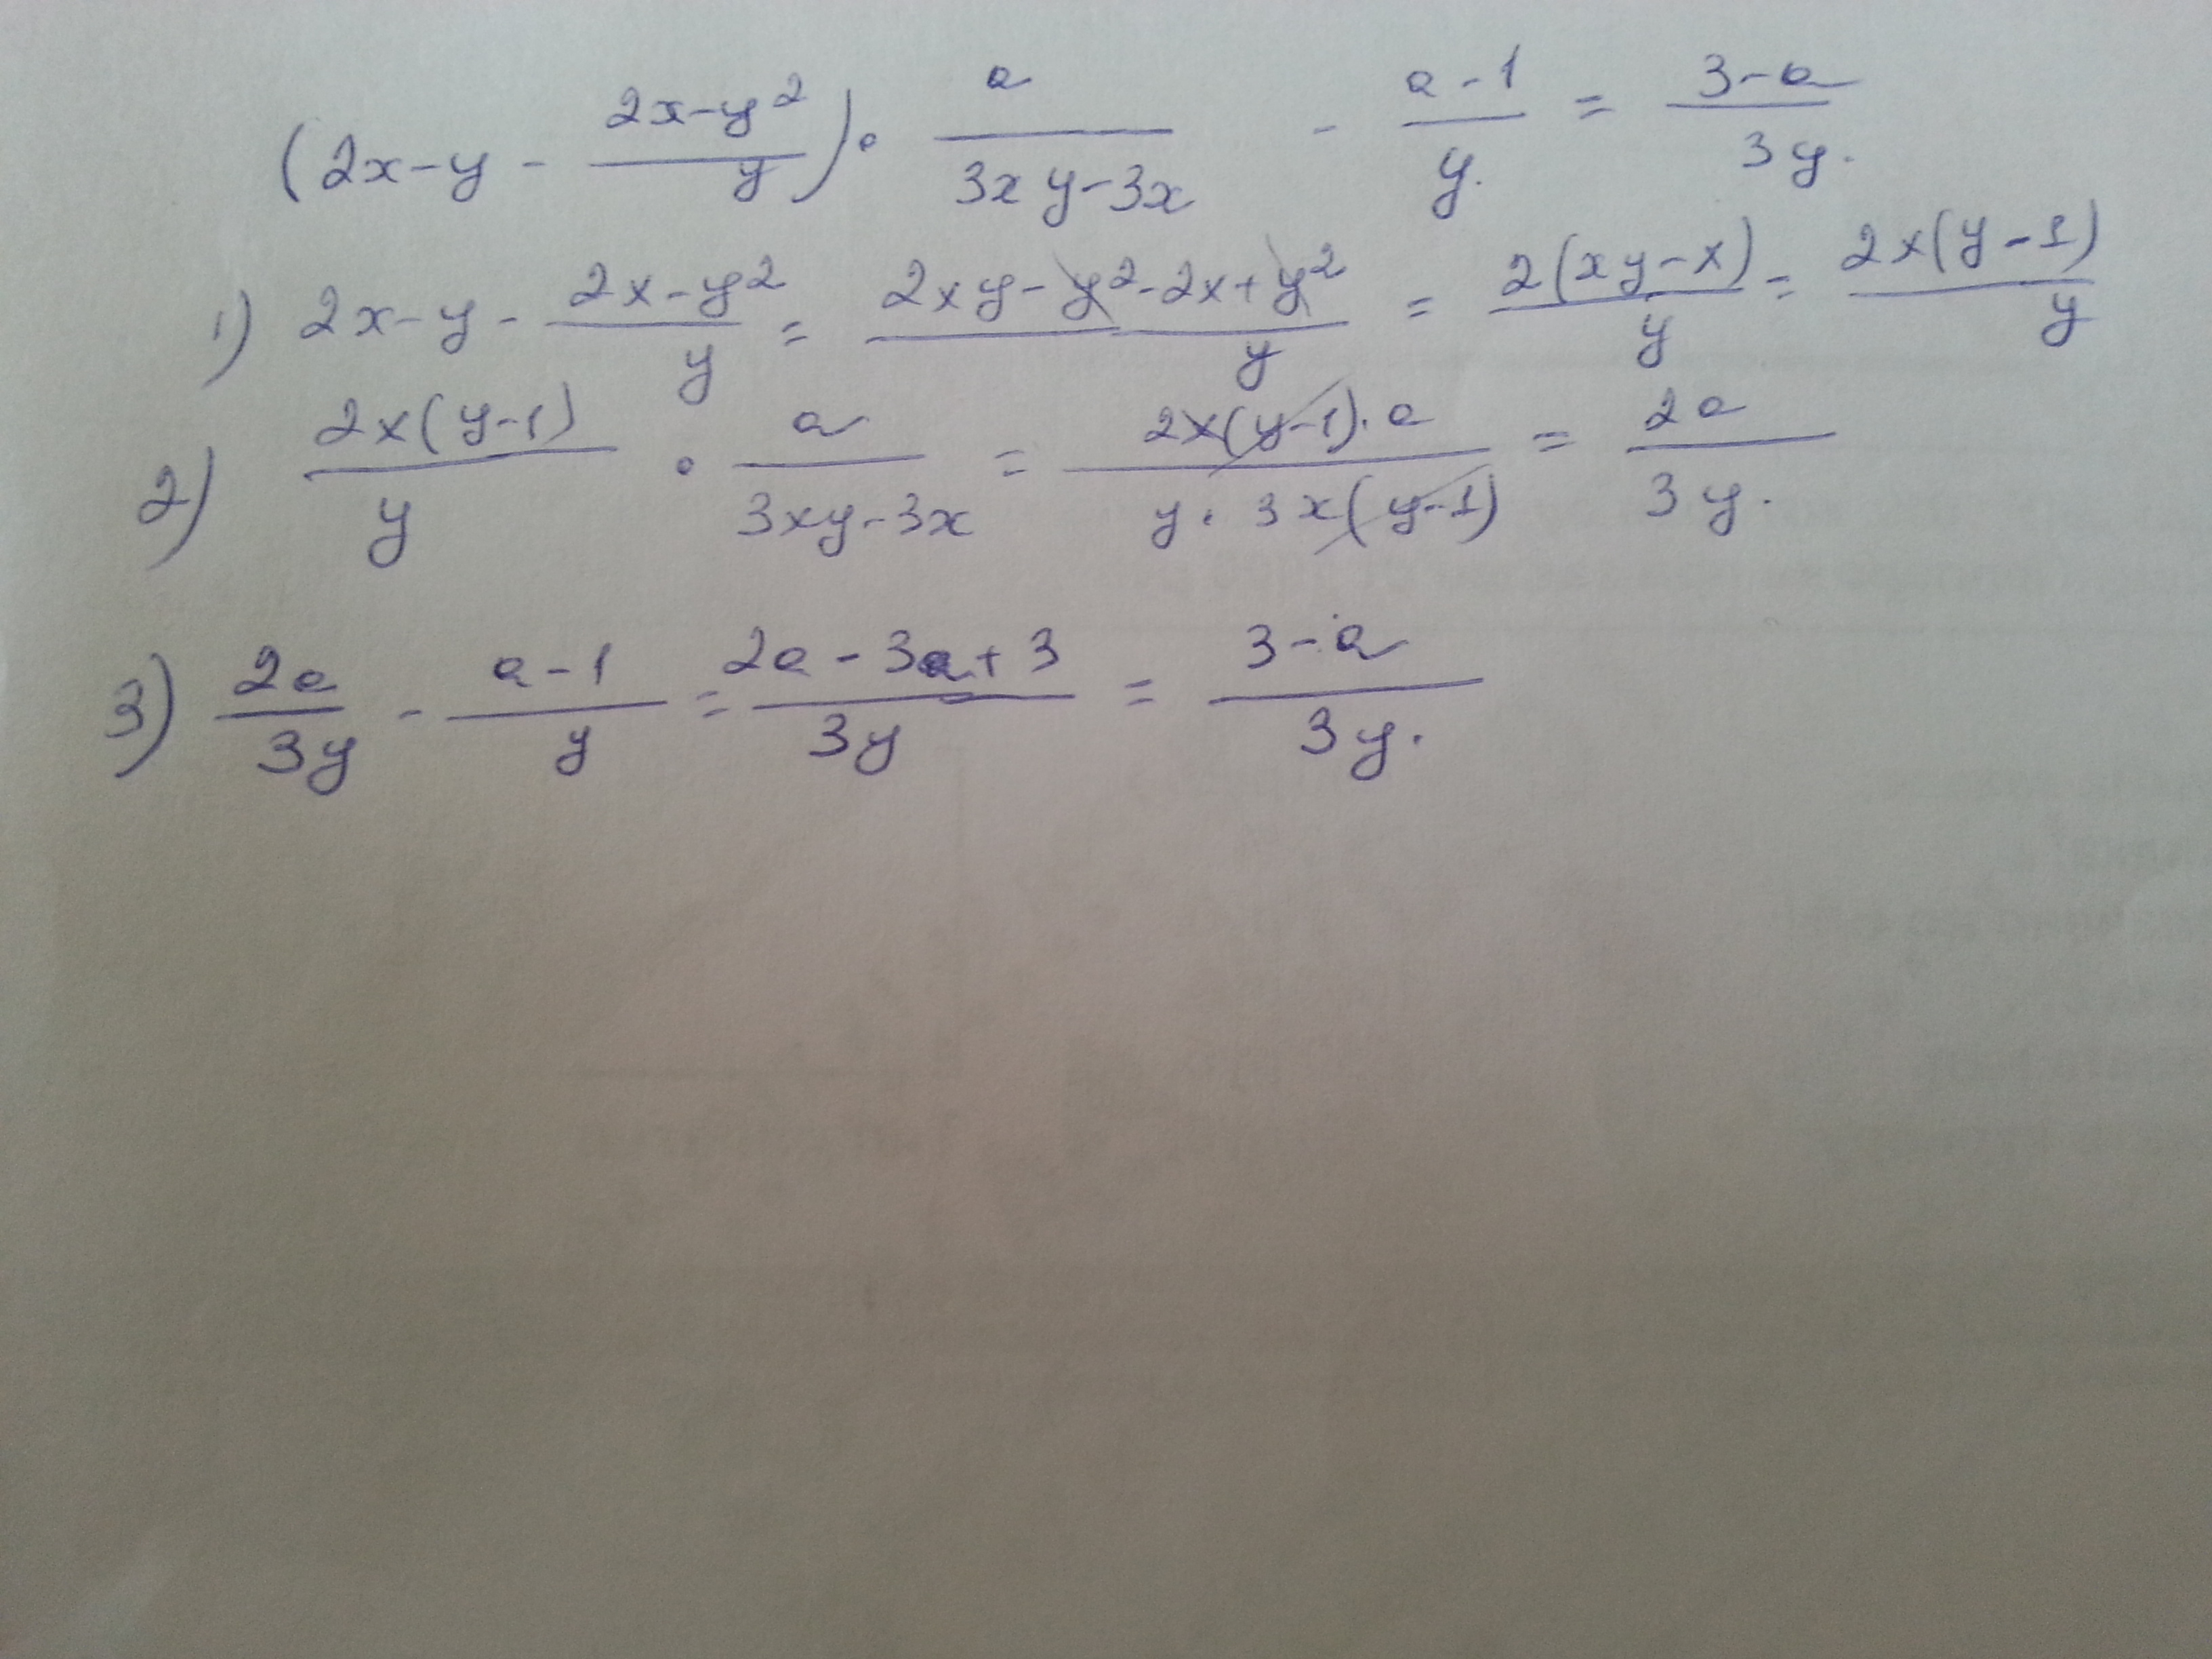 (2x-y - \frac{2x-y^2}{y}) \cdot \frac{a}{3xy-3x} - \frac{a-1}{y.} = \frac{3-a}{3y.}
1) 2x-y - \frac{2x-y^2}{y} = \frac{2xy-y^2-2x+y^2}{y} = \frac{2(xy-x)}{y} = \frac{2x(y-1)}{y}
2) \frac{2x(y-1)}{y} \cdot \frac{a}{3xy-3x} = \frac{2x(y-1) \cdot a}{y \cdot 3x(y-1)} = \frac{2a}{3y.}
3) \frac{2a}{3y} - \frac{a-1}{y} = \frac{2a-3a+3}{3y} = \frac{3-a}{3y.}